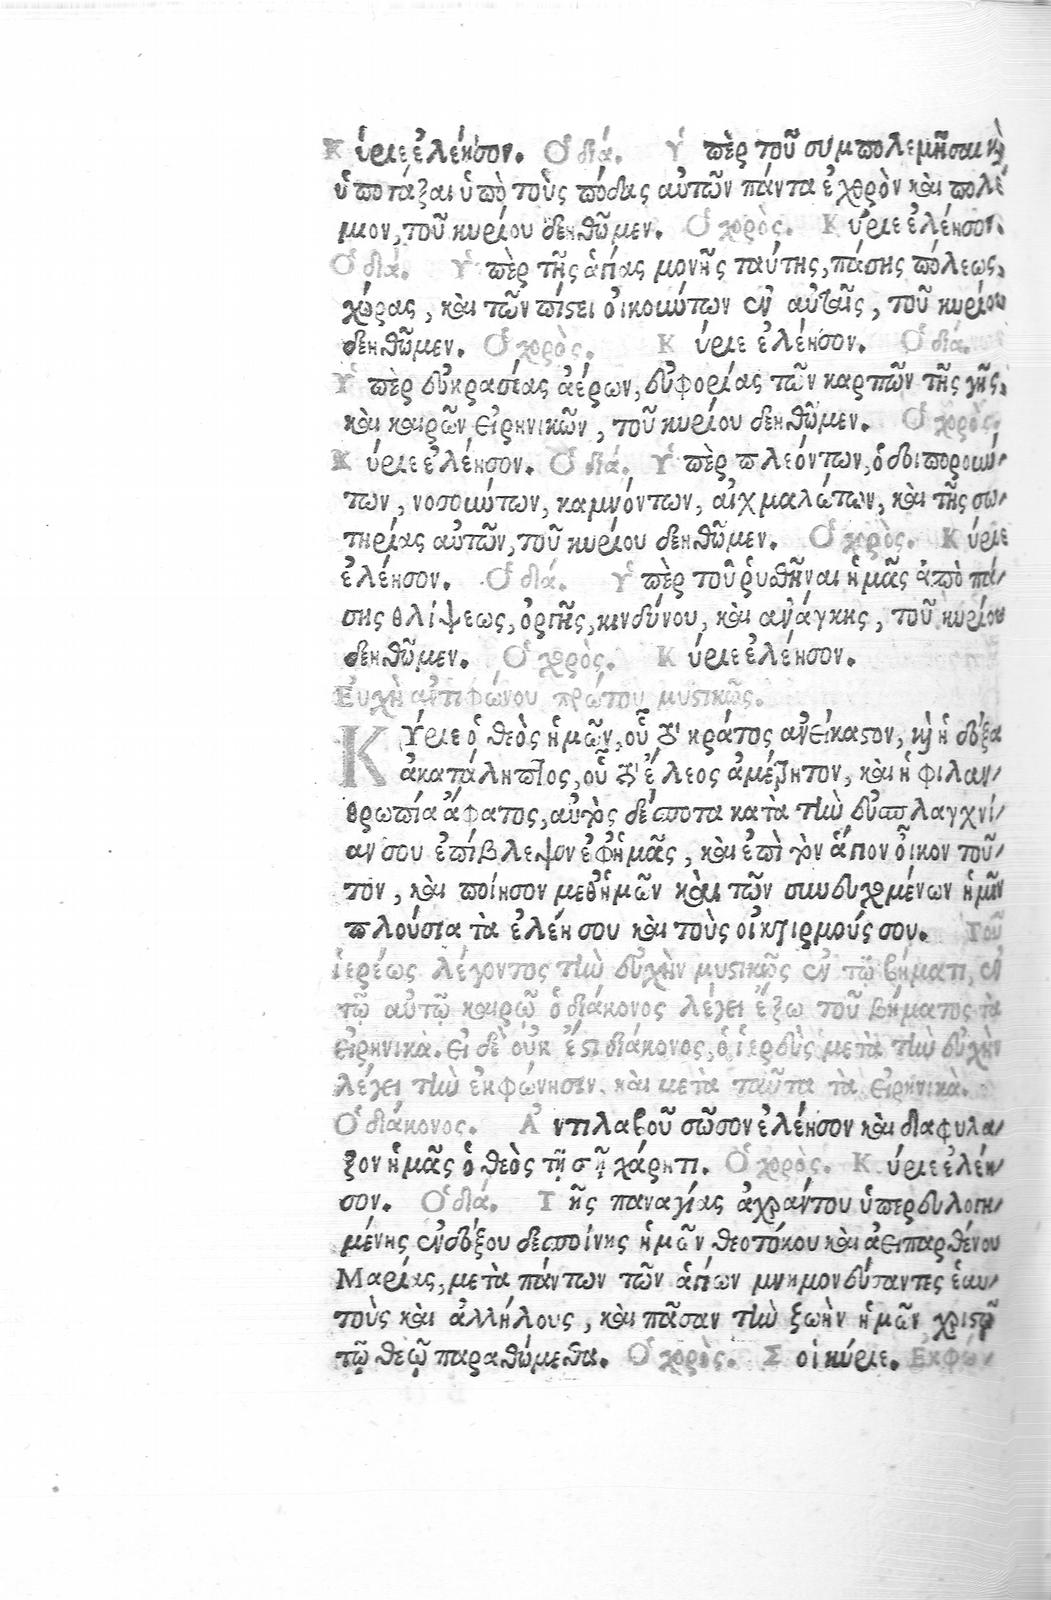 Κύριε ἐλέησον. Ὁ διά. Ὑπὲρ τοῦ συμπολεμῆσαι καὶ
ὑποτάξαι ὑπὸ τοὺς πόδας αὐτῶν πάντα ἐχθρὸν καὶ πολέ
μιον, τοῦ κυρίου δεηθῶμεν. Ὁ χορὸς. Κύριε ἐλέησον.
Ὁ διά. Ὑπὲρ τῆς ἁγίας μονῆς ταύτης, πάσης πόλεως,
χώρας, καὶ τῶν πίστει οἰκούντων ἐν αὐταῖς, τοῦ κυρίου
δεηθῶμεν. Ὁ χορὸς. Κύριε ἐλέησον. Ὁ διά.
Ὑπὲρ εὐκρασίας ἀέρων, εὐφορίας τῶν καρπῶν τῆς γῆς,
καὶ καιρῶν εἰρηνικῶν, τοῦ κυρίου δεηθῶμεν. Ὁ χορὸς.
Κύριε ἐλέησον. Ὁ διά. Ὑπὲρ πλεόντων, ὁδοιπορούν/
των, νοσούντων, καμνόντων, αἰχμαλώτων, καὶ τῆς σω/
τηρίας αὐτῶν, τοῦ κυρίου δεηθῶμεν. Ὁ χορὸς. Κύριε
ἐλέησον. Ὁ διά. Ὑπὲρ τοῦ ῥυσθῆναι ἡμᾶς ἀπὸ πά/
σης θλίψεως, ὀργῆς, κινδύνου, καὶ ἀνάγκης, τοῦ κυρίου
δεηθῶμεν. Ὁ χορὸς. Κύριε ἐλέησον.
Εὐχὴ ἀντιφώνου πρώτου μυστικῶς.
ΚΎριε ὁ θεὸς ἡμῶν, οὗ τὸ κράτος ἀνείκαστον, καὶ ἡ δόξα
ἀκατάληπτος, οὗ τὸ ἔλεος ἀμέτρητον, καὶ ἡ φιλαν/
θρωπία ἄφατος, αὐτὸς δέσποτα κατὰ τὴν εὐσπλαγχνί/
αν σου ἐπίβλεψον ἐφ' ἡμᾶς, καὶ ἐπὶ τὸν ἅγιον οἶκον τοῦ/
τον, καὶ ποίησον μεθ' ἡμῶν καὶ τῶν συνευχομένων ἡμῖν
πλούσια τὰ ἐλέη σου καὶ τοὺς οἰκτιρμούς σου. Τοῦ
ἱερέως λέγοντος τὴν εὐχὴν μυστικῶς ἐν τῷ βήματι, ἐν
τῷ αὐτῷ καιρῷ ὁ διάκονος λέγει ἔξω τοῦ βήματος τὰ
εἰρηνικά. εἰ δὲ οὐκ ἔστι διάκονος, ὁ ἱερεὺς μετὰ τὴν εὐχὴν
λέγει τὴν ἐκφώνησιν. καὶ μετὰ ταῦτα τὰ εἰρηνικὰ.
Ὁ διάκονος. Ἀντιλαβοῦ σῶσον ἐλέησον καὶ διαφυλα/
ξον ἡμᾶς ὁ θεὸς τῇ σῇ χάριτι. Ὁ χορὸς. Κύριε ἐλέη
σον. Ὁ διά. Τῆς παναγίας ἀχράντου ὑπερευλογη/
μένης ἐνδόξου δεσποίνης ἡμῶν θεοτόκου καὶ ἀειπαρθένου
Μαρίας, μετὰ πάντων τῶν ἁγίων μνημονεύσαντες ἑαυ/
τοὺς καὶ ἀλλήλους, καὶ πᾶσαν τὴν ζωὴν ἡμῶν χριστῷ
τῷ θεῷ παραθώμεθα. Ὁ χορὸς. Σοὶ κύριε. Ἐκφώ/